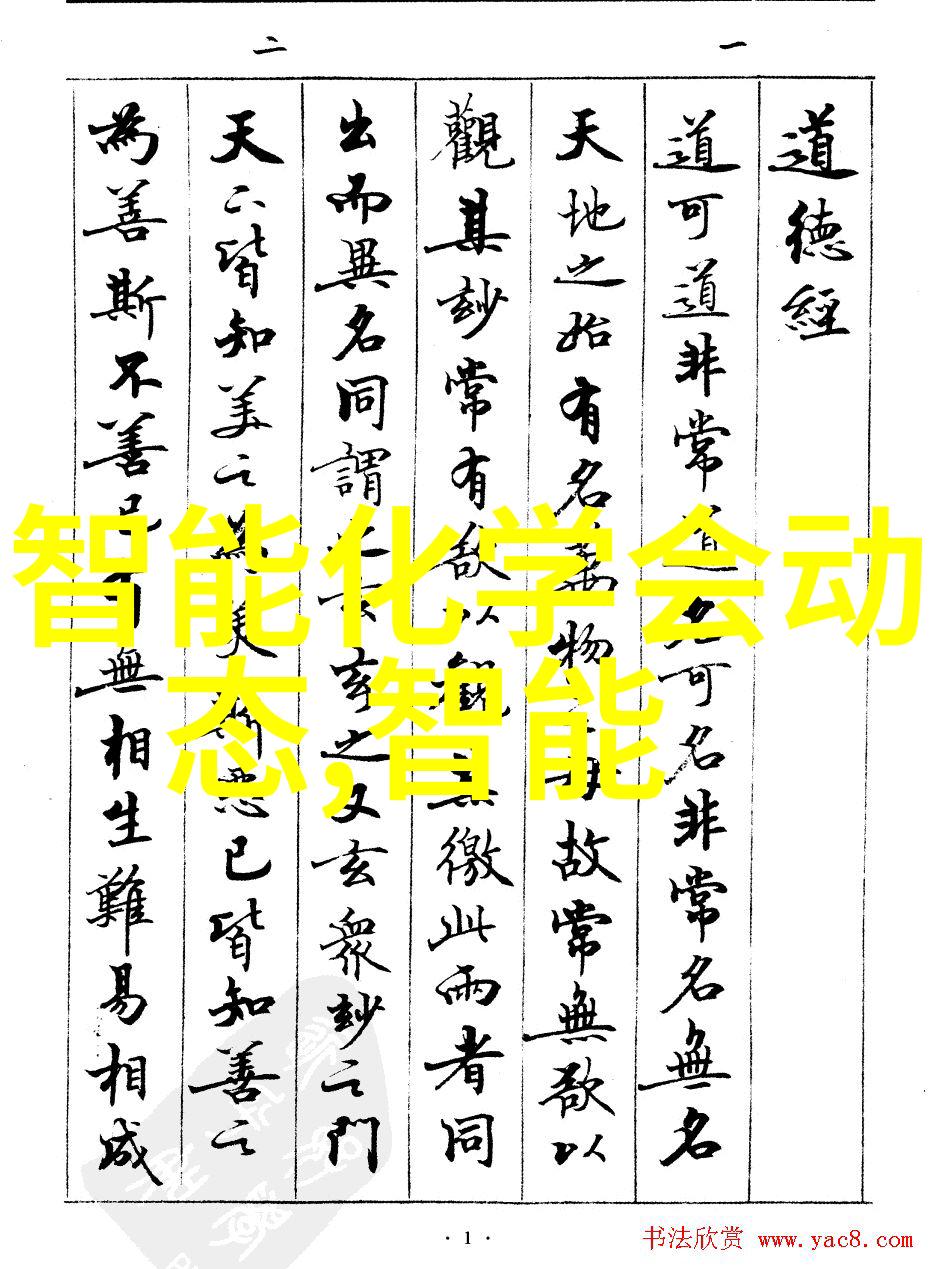 一
二
道德經
道可道非常道名可名非常名無名
天地之始有名萬物之母故常無欲以
觀其玅常有欲以觀其徼此兩者同
出而異名同謂之玄玄之又玄衆玅之門
天下皆知美之為美斯惡已皆知善之
為善斯不善已有無相生難易相成
智能化学会动
态,智能
· 1 ·
书法欣赏 www.yac8.com